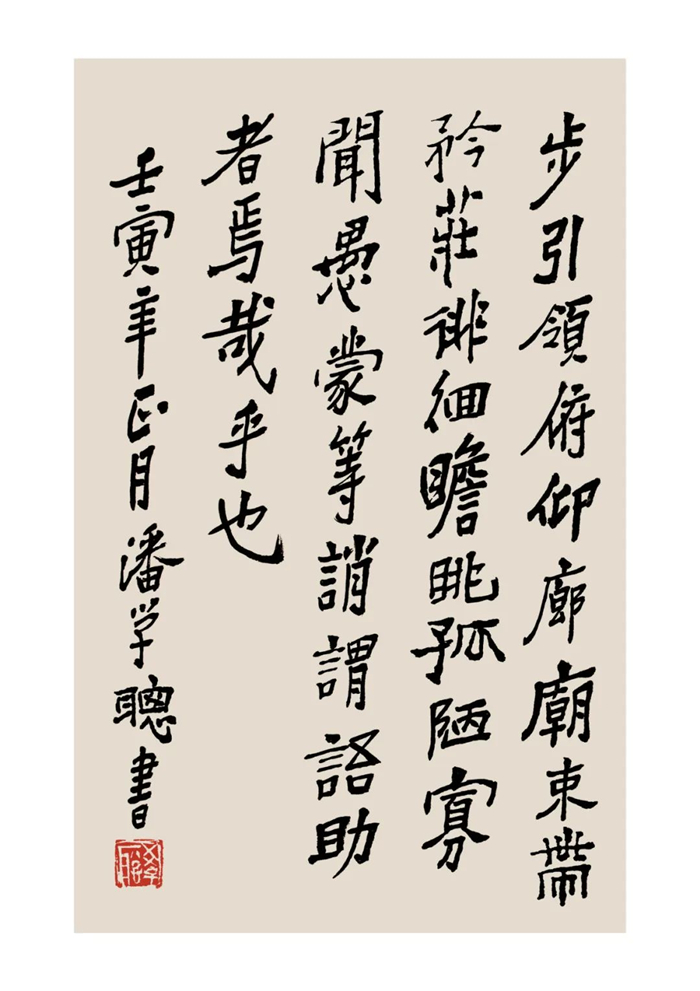 步引領俯仰廊廟束帶
矜莊徘徊瞻眺孤陋寡
聞愚蒙等誚謂語助
者焉哉乎也
壬寅年正月潘学聰書